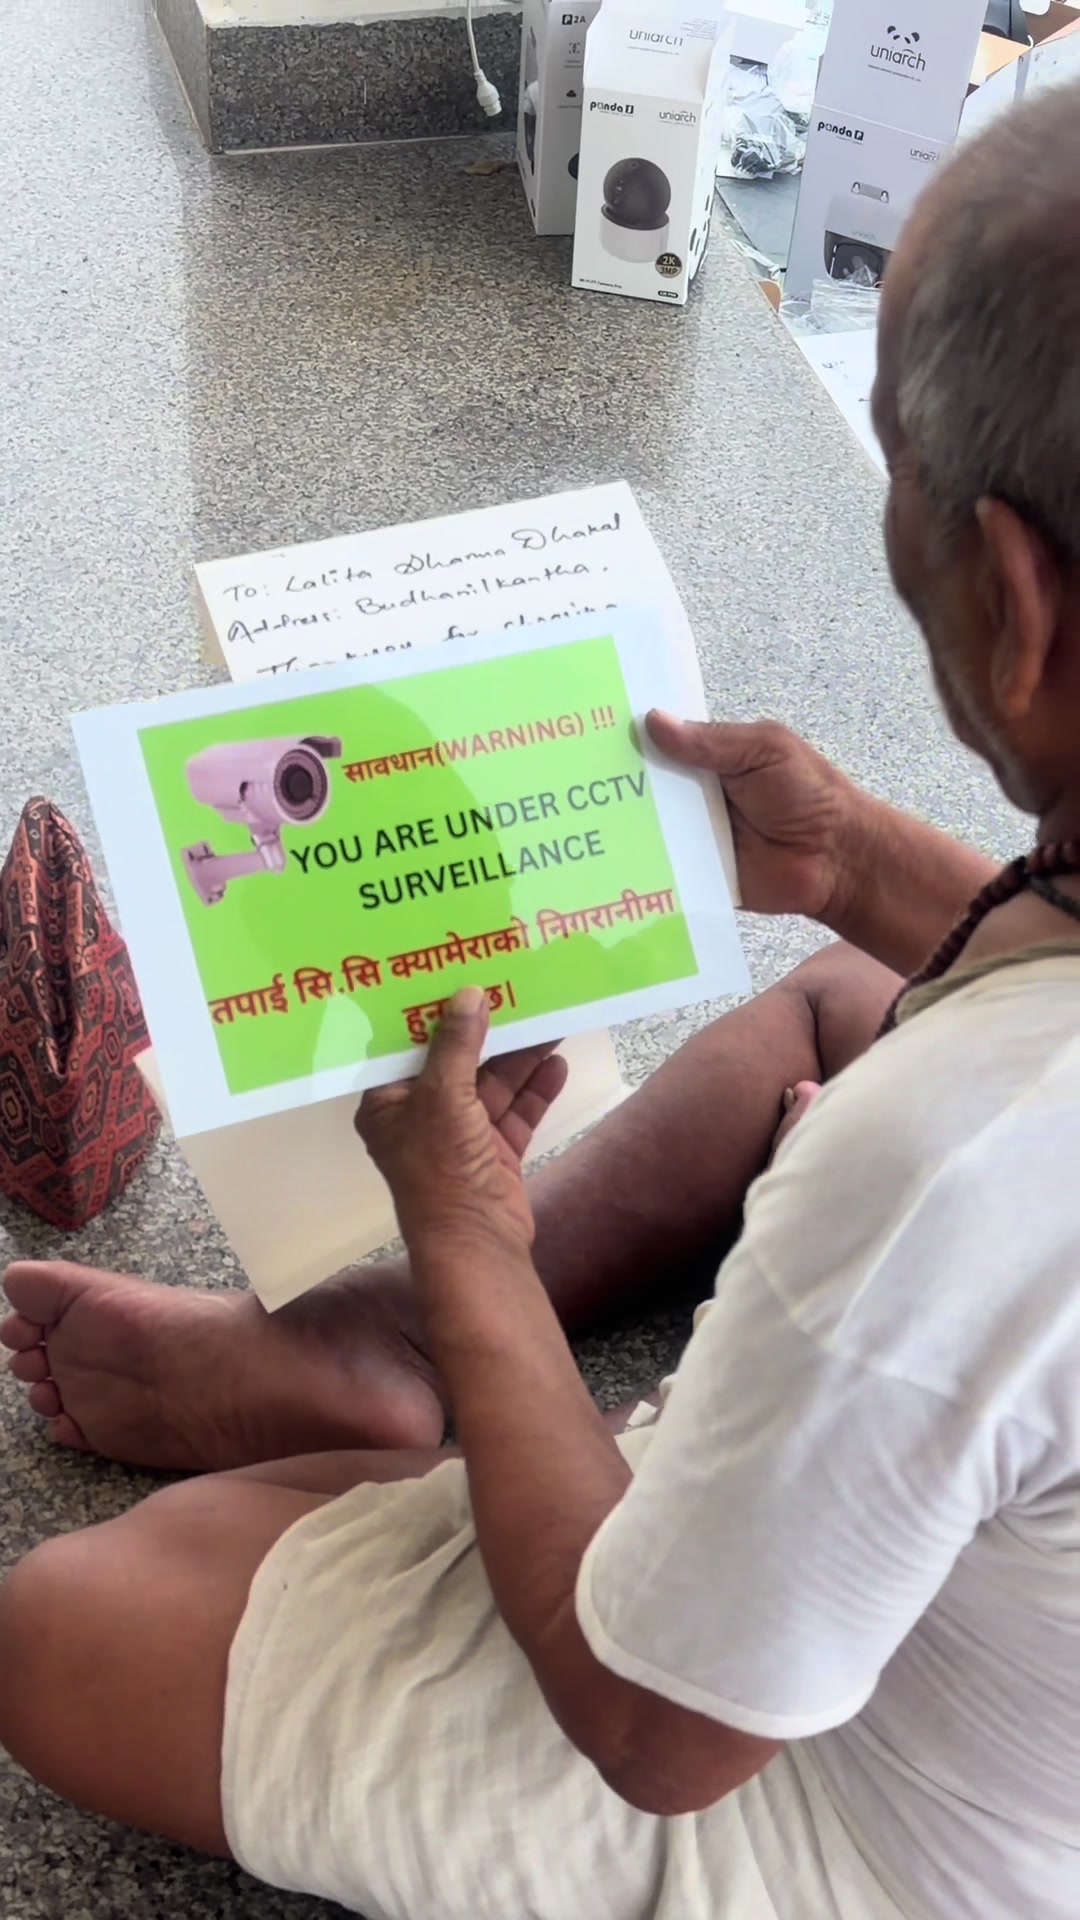 P 2A
uniarch
panda P
uniarch
2K
3MP
uniarch
panda P
To: Lalita Dharma Dhakal
Address: Budhanilkantha.
सावधान(WARNING) !!!
YOU ARE UNDER CCTV
SURVEILLANCE
तपाई सि.सि क्यामेराको निगरानीमा